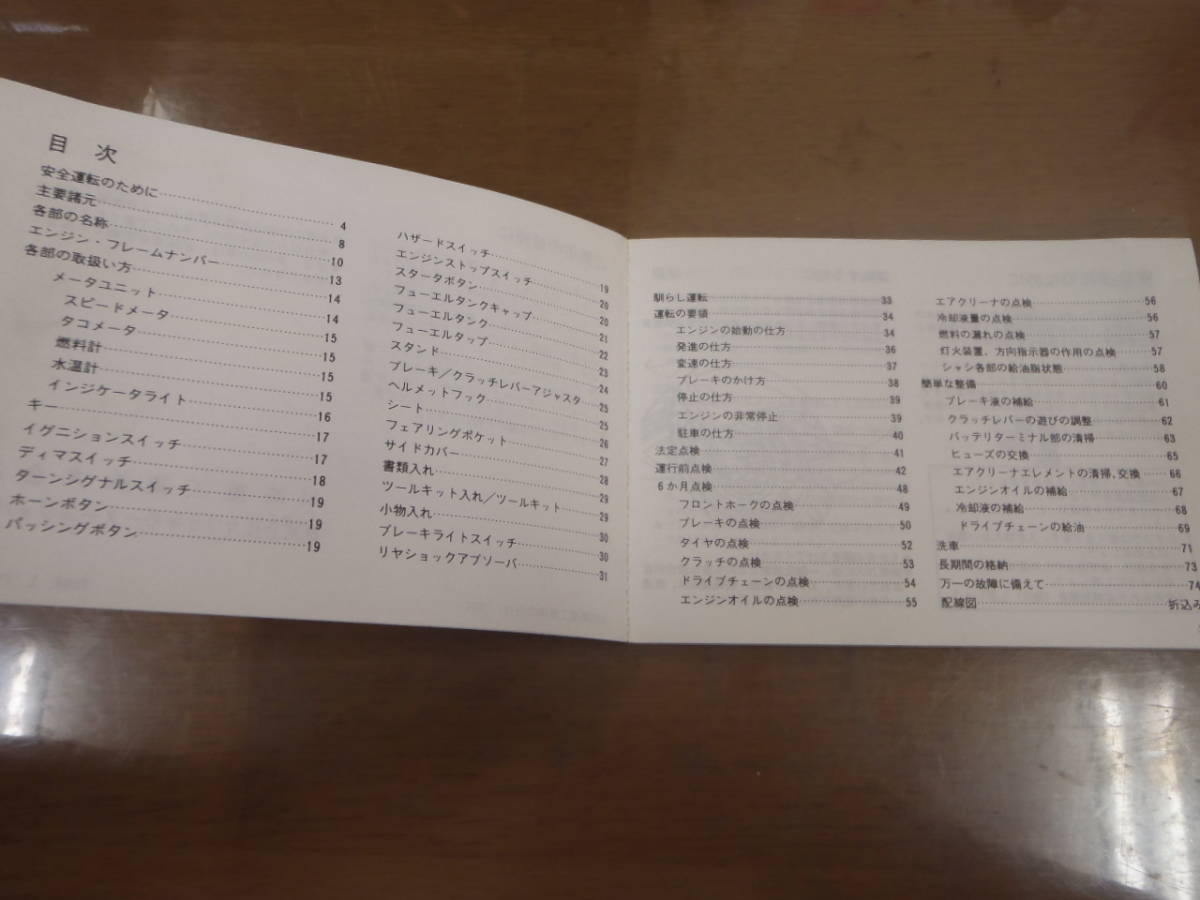 目 次
安全運転のために……………………4
主要諸元……………………8
各部の名称……………………10
エンジン・フレームナンバー……………………13
各部の取扱い方……………………14
メータユニット……………………14
スピードメータ……………………15
タコメータ……………………15
燃料計……………………15
水温計……………………15
インジケータライト……………………16
キー……………………17
イグニションスイッチ……………………17
ディマスイッチ……………………18
ターンシグナルスイッチ……………………19
ホーンボタン……………………19
パッシングボタン……………………19
ハザードスイッチ……………………19
エンジンストップスイッチ……………………20
スタータボタン……………………20
フューエルタンクキャップ……………………21
フューエルタンク……………………22
フューエルタップ……………………23
スタンド……………………24
ブレーキ/クラッチレバーアジャスタ……25
ヘルメットフック……………………25
シート……………………26
フェアリングポケット……………………27
サイドカバー……………………28
書類入れ……………………29
ツールキット入れ/ツールキット……………29
小物入れ……………………30
ブレーキライトスイッチ……………………30
リヤショックアブソーバ……………………31
馴らし運転……………………33
運転の要領……………………34
エンジンの始動の仕方……………………34
発進の仕方……………………36
変速の仕方……………………37
ブレーキのかけ方……………………38
停止の仕方……………………39
エンジンの非常停止……………………39
駐車の仕方……………………40
法定点検……………………41
運行前点検……………………42
6か月点検……………………48
フロントホークの点検……………………49
ブレーキの点検……………………50
タイヤの点検……………………52
クラッチの点検……………………53
ドライブチェーンの点検……………………54
エンジンオイルの点検……………………55
エアクリーナの点検……………………56
冷却液量の点検……………………56
燃料の漏れの点検……………………57
灯火装置、方向指示器の作用の点検……57
シャシ各部の給油脂状態……………………58
簡単な整備……………………60
ブレーキ液の補給……………………61
クラッチレバーの遊びの調整……………62
バッテリターミナル部の清掃……………63
ヒューズの交換……………………65
エアクリーナエレメントの清掃、交換……66
エンジンオイルの補給……………………67
冷却液の補給……………………68
ドライブチェーンの給油……………………69
洗車……………………71
長期間の格納……………………73
万一の故障に備えて……………………74
配線図……………………折込み